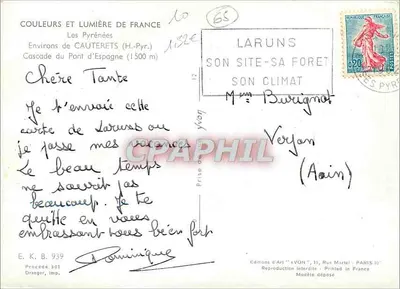 COULEURS ET LUMIÈRE DE FRANCE
Les Pyrénées
Environs de CAUTERETS (H.-Pyr.)
Cascade du Pont d'Espagne (1500 m)
10
65
1,22€
LARUNS
SON SITE-SA FORET
SON CLIMAT
0,20
Chère Tante
Je t'envoie cette
carte de Laruns ou
je passe mes vacances
Le beau temps
ne sourit pas
beaucoup. Je te
quitte en vous
embrassant tous bien fort
Dominique
Mme Burignat
Verjon
(Ain)
yvon
CPAPHIL
E. K. B. 939
Draeger, imp.
Editions d'Art "YVON", 15, Rue Martel - PARIS-10e
Reproduction interdite - Printed in France
Modèle déposé